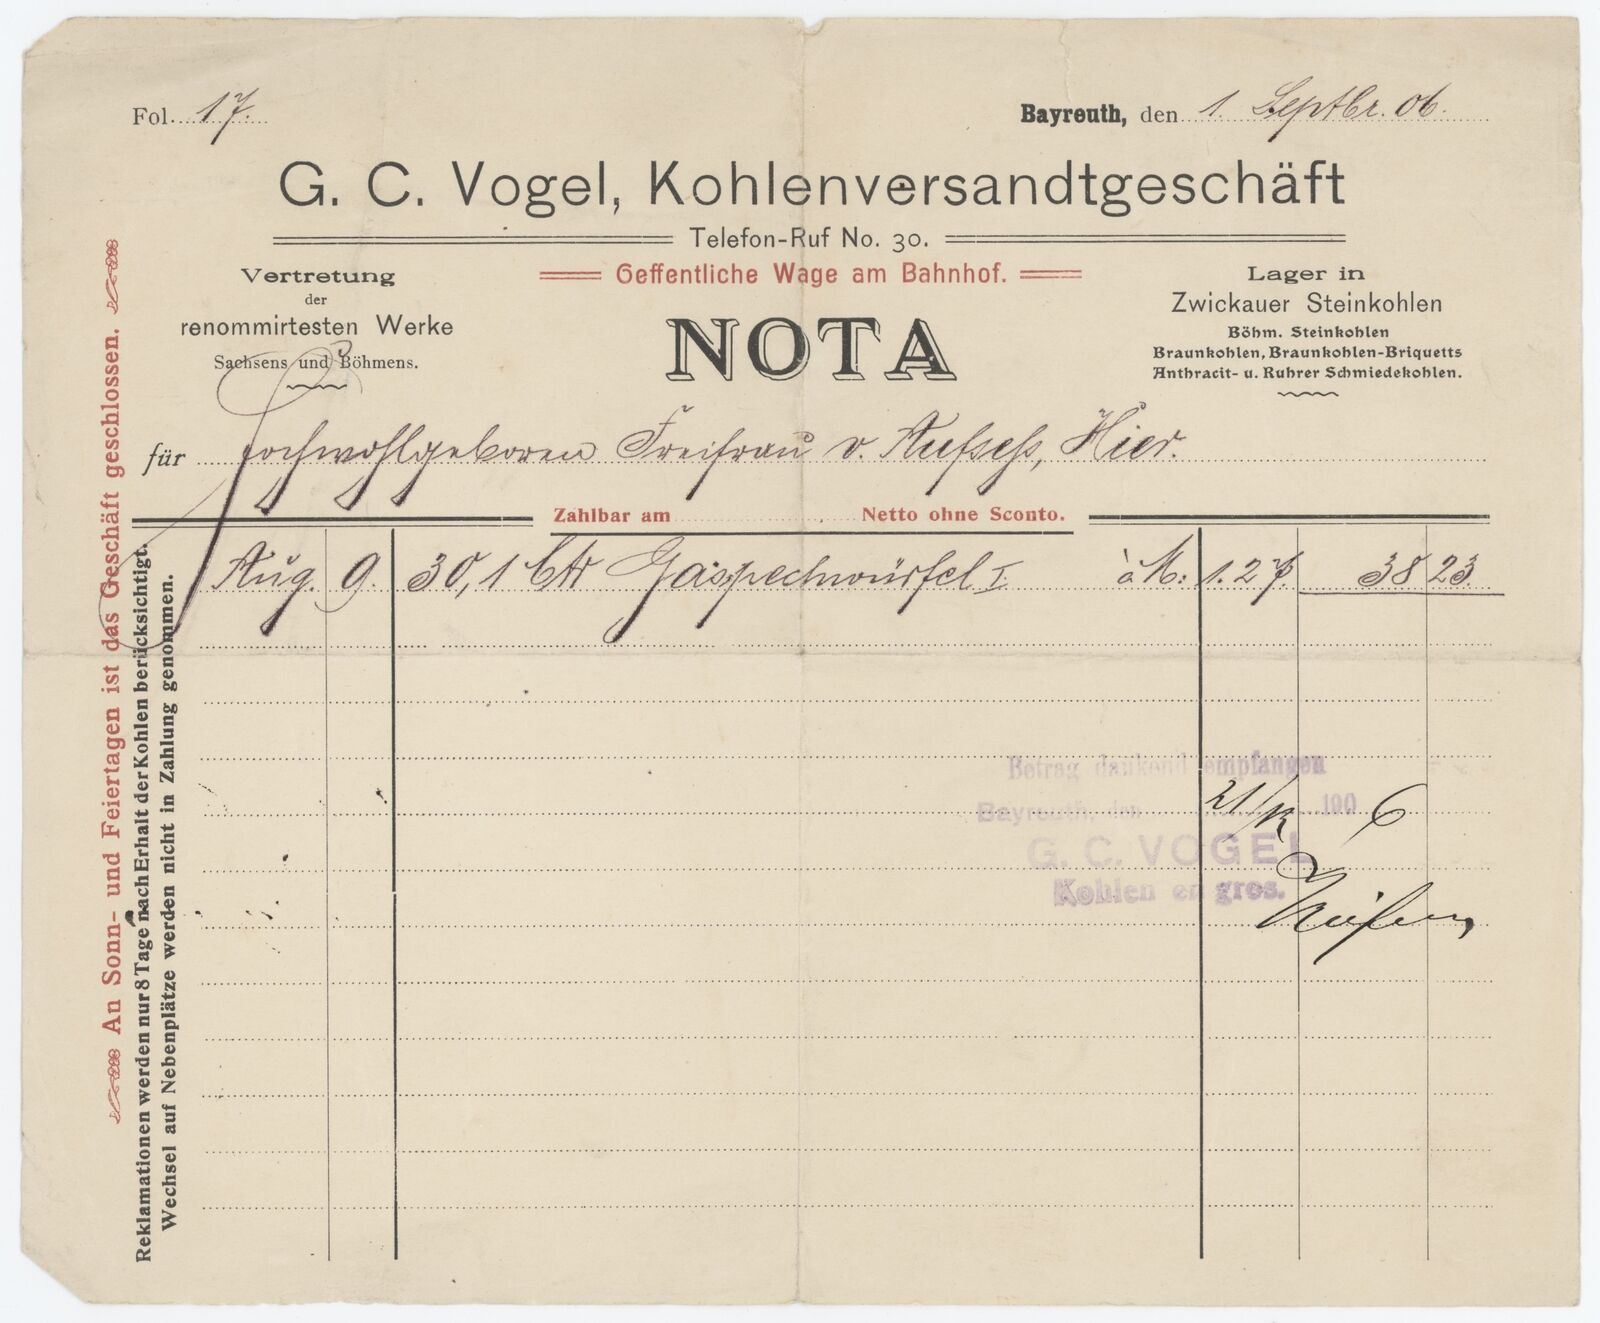 Fol. 17.
Bayreuth, den 1. Septbr. 06.
G. C. Vogel, Kohlenversandtgeschäft
Telefon-Ruf No. 30.
Oeffentliche Wage am Bahnhof.
Vertretung
der
renommirtesten Werke
Sachsens und Böhmens.
NOTA
Lager in
Zwickauer Steinkohlen
Böhm. Steinkohlen
Braunkohlen, Braunkohlen-Briquetts
Anthracit- u. Ruhrer Schmiedekohlen.
für Hochwohlgeboren Freifrau v. Aufseß, Hier.
Zahlbar am Netto ohne Sconto.
Aug. 9. 30,1 Ctr Gaspechwürfel I. à M: 1.27 38 23.
Betrag dankend empfangen
Bayreuth, den 21/12 1906
G. C. VOGEL
Kohlen en gros.
An Sonn- und Feiertagen ist das Geschäft geschlossen.
Reklamationen werden nur 8 Tage nach Erhalt der Kohlen berücksichtigt.
Wechsel auf Nebenplätze werden nicht in Zahlung genommen.